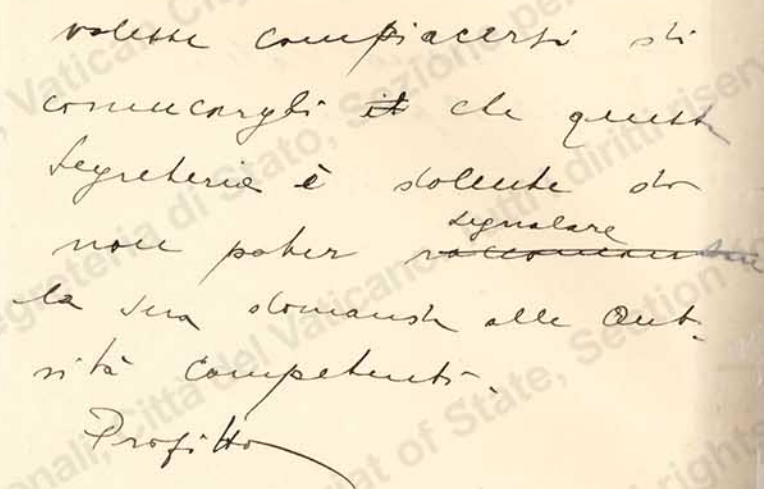 volesse compiacersi di
comunicargli it che questa
Segreteria è dolente di
non poter segnalare raccomandare
la sua domanda alle Auto-
rità competenti.
Profitto